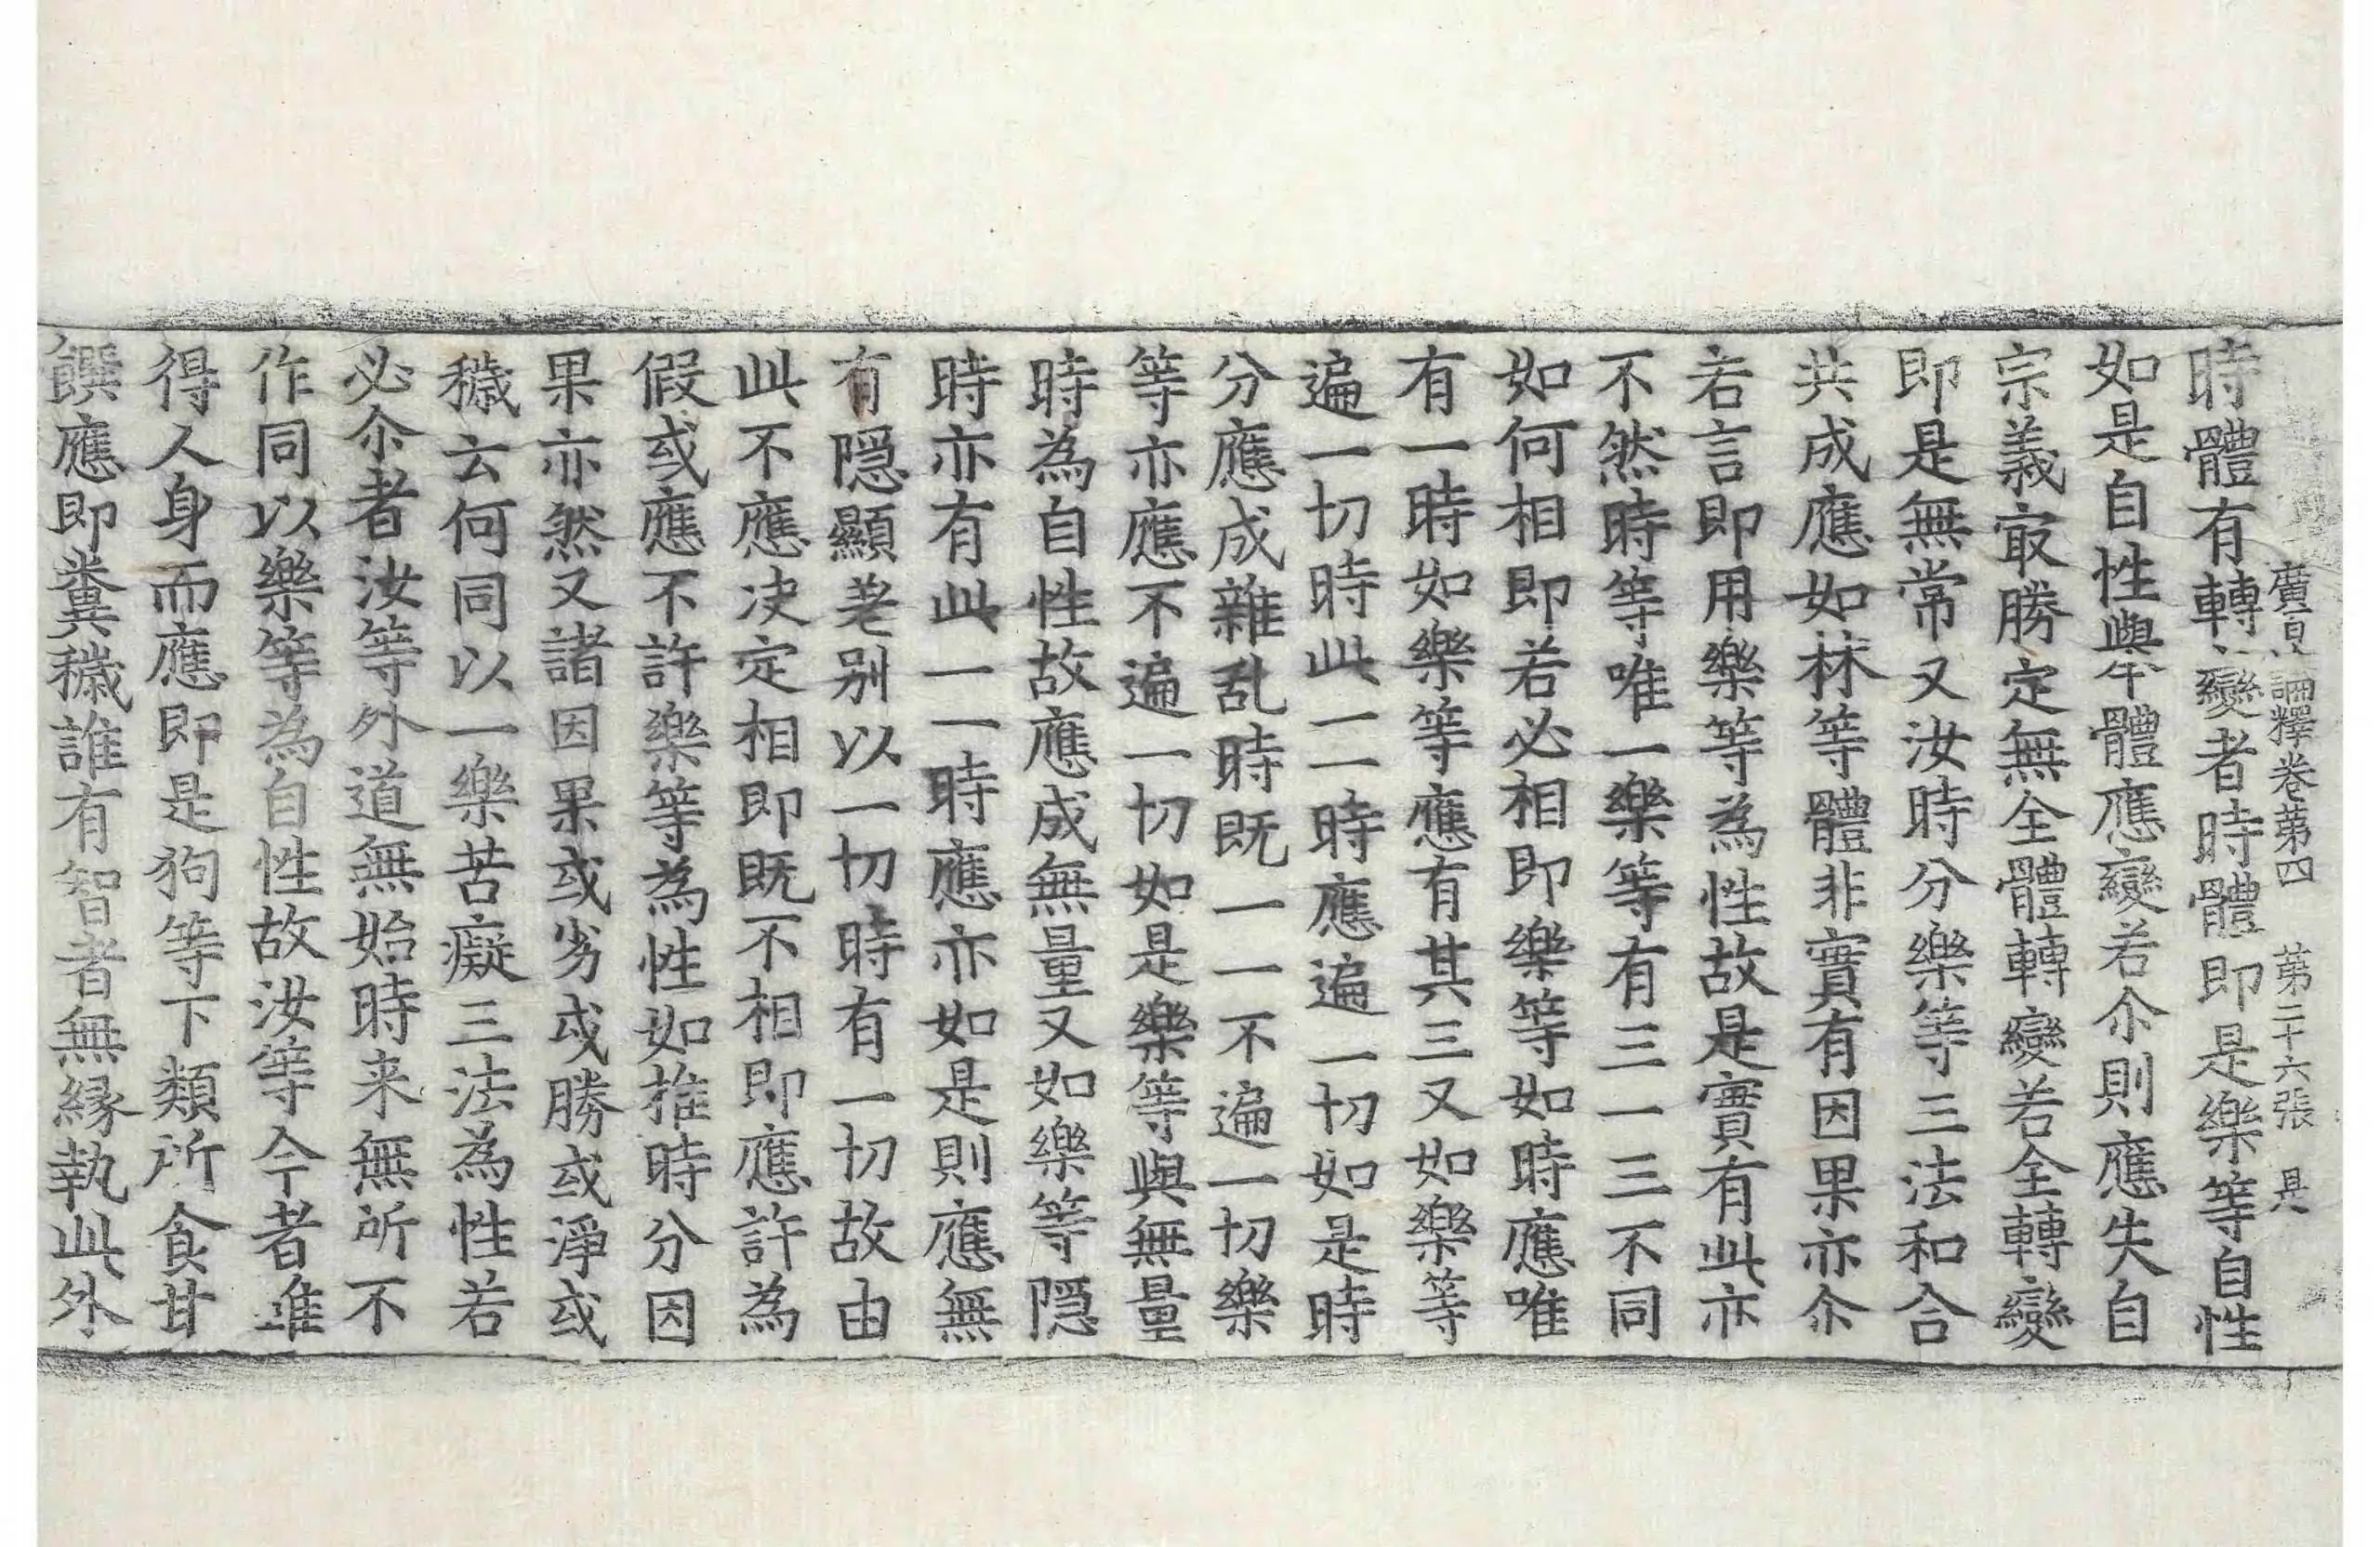 廣百論釋卷第四 第二十六張 具
時體有轉變者時體即是樂等自性
如是自性與體應變若尒則應失自
宗義㝡勝定無全體轉變若全轉變
即是無常又汝時分樂等三法和合
共成應如林等體非實有因果亦尒
若言即用樂等為性故是實有此亦
不然時等唯一樂等有三一三不同
如何相即若必相即樂等如時應唯
有一時如樂等應有其三又如樂等
遍一切時此一一時應遍一切如是時
分應成雜乱時既一一不遍一切樂
等亦應不遍一切如是樂等與無量
時為自性故應成無量又如樂等隠
時亦有此一一時應亦如是則應無
有隠顯差别以一切時有一切故由
此不應决定相即既不相即應許為
假或應不許樂等為性如推時分因
果亦然又諸因果或劣或勝或淨或
穢云何同以一樂苦癡三法為性若
必尒者汝等外道無始時来無所不
作同以樂等為自性故汝等今者雖
得人身而應即是狗等下類所食甘
饌應即糞穢誰有智者無縁執此外